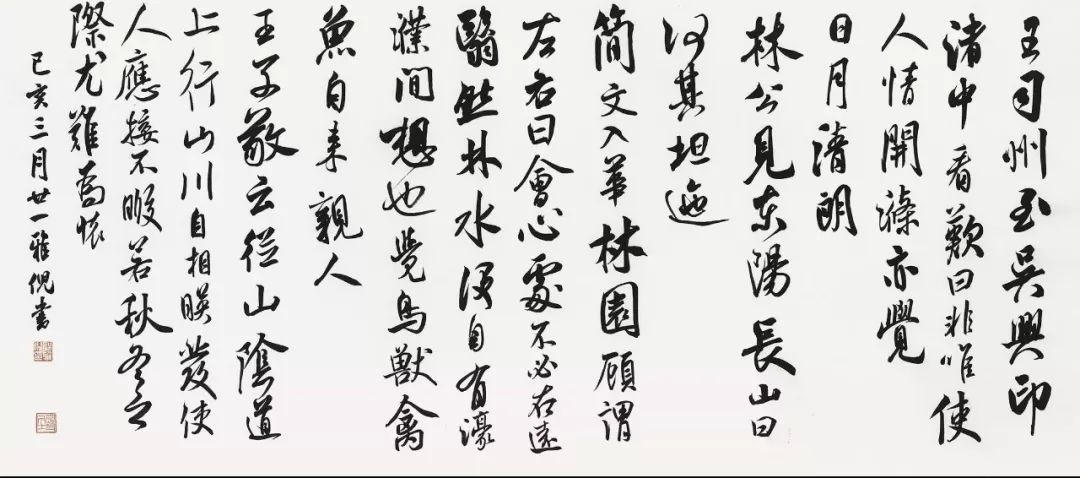 王司州至吳興印
渚中看歎曰非唯使
人情開滌亦覺
日月清朗
林公見东陽長山曰
何其坦迤
簡文入華林園顧謂
左右曰會心處不必在遠
翳然林水便自有濠
濮間想也覺鳥獸禽
魚自来親人
王子敬云從山陰道
上行山川自相暎發使
人應接不暇若秋冬之
際尤難為懷
己亥三月廿一雅倪書